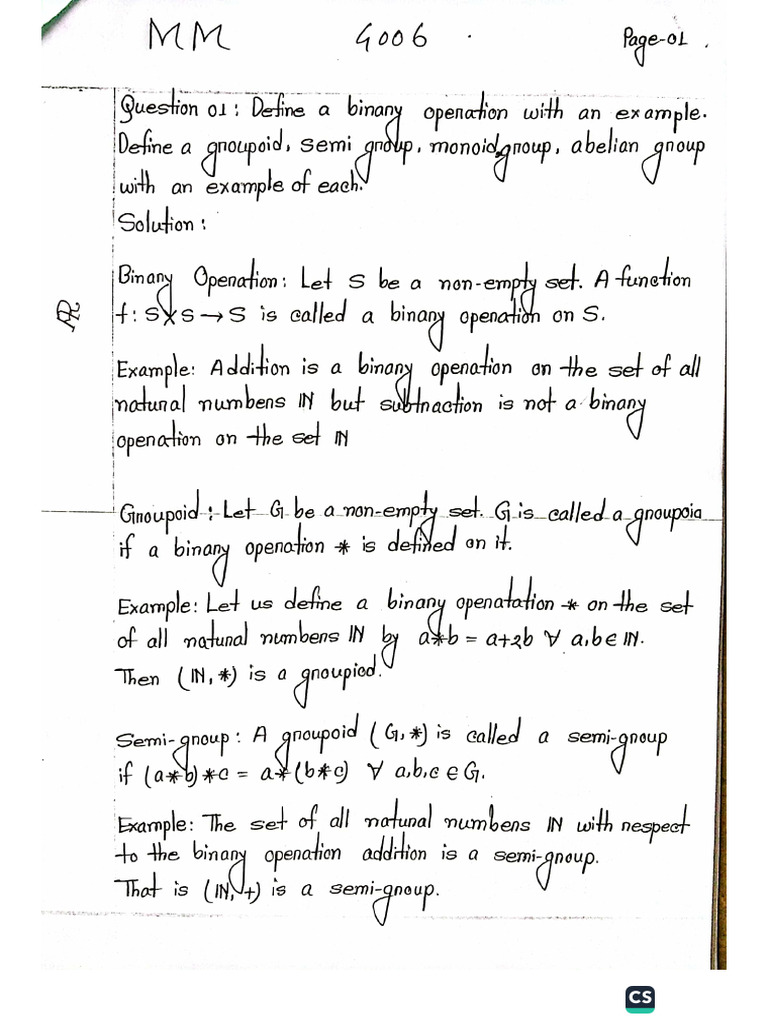 MM 4006 . Page-01 .
Question 01: Define a binary operation with an example.
Define a groupoid, semi group, monoid, group, abelian group
with an example of each.
Solution:
Binary Operation: Let S be a non-empty set. A function
f: S×S → S is called a binary operation on S.
Example: Addition is a binary operation on the set of all
natural numbers IN but subtraction is not a binary
operation on the set IN
Groupoid: Let G be a non-empty set. G is called a groupoid
if a binary operation * is defined on it.
Example: Let us define a binary operatation * on the set
of all natural numbers IN by a*b = a+2b ∀ a,b ∈ IN.
Then (IN, *) is a groupied.
Semi-group: A groupoid (G, *) is called a semi-group
if (a*b)*c = a*(b*c) ∀ a,b,c ∈ G.
Example: The set of all natural numbers IN with respect
to the binary operation addition is a semi-group.
That is (IN, +) is a semi-group.
CS